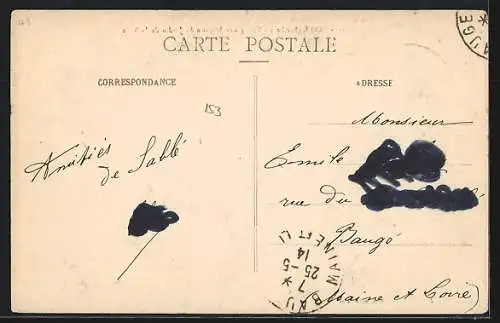 CARTE POSTALE
CORRESPONDANCE
ADRESSE
153
Amitiés
de Sablé
Monsieur
Emile
rue du
Baugé
(Maine et Loire)
BAUGE *
BAU * MAINE ET L
7-5
25-5
14